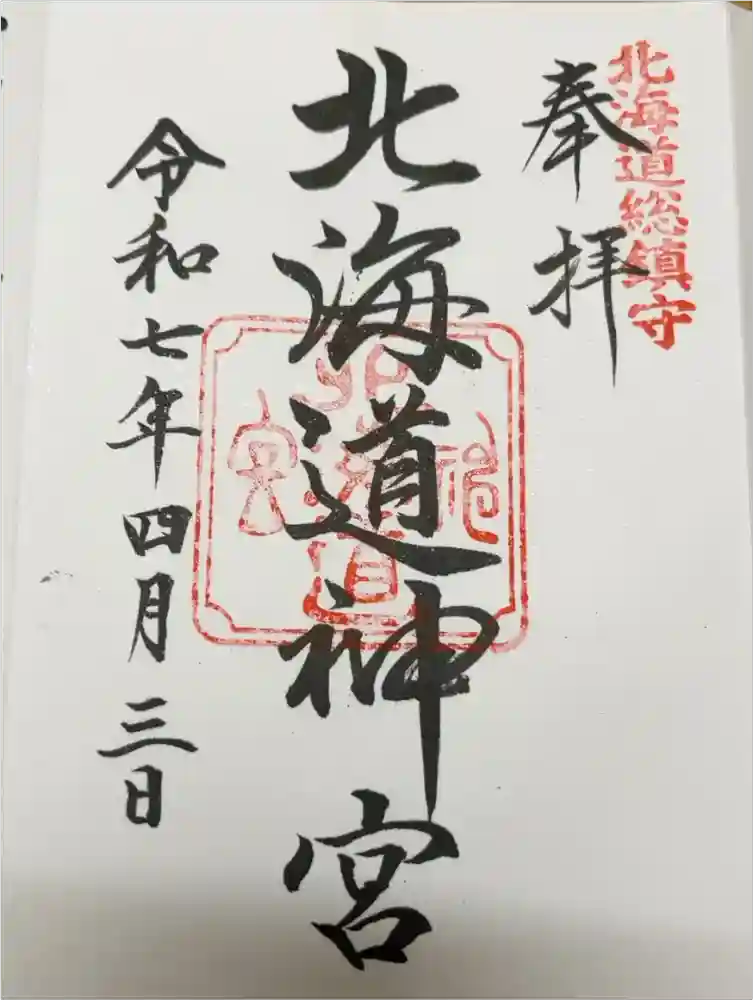 北海道総鎮守
奉拝
北海道神宮
令和七年四月三日
北海道神宮